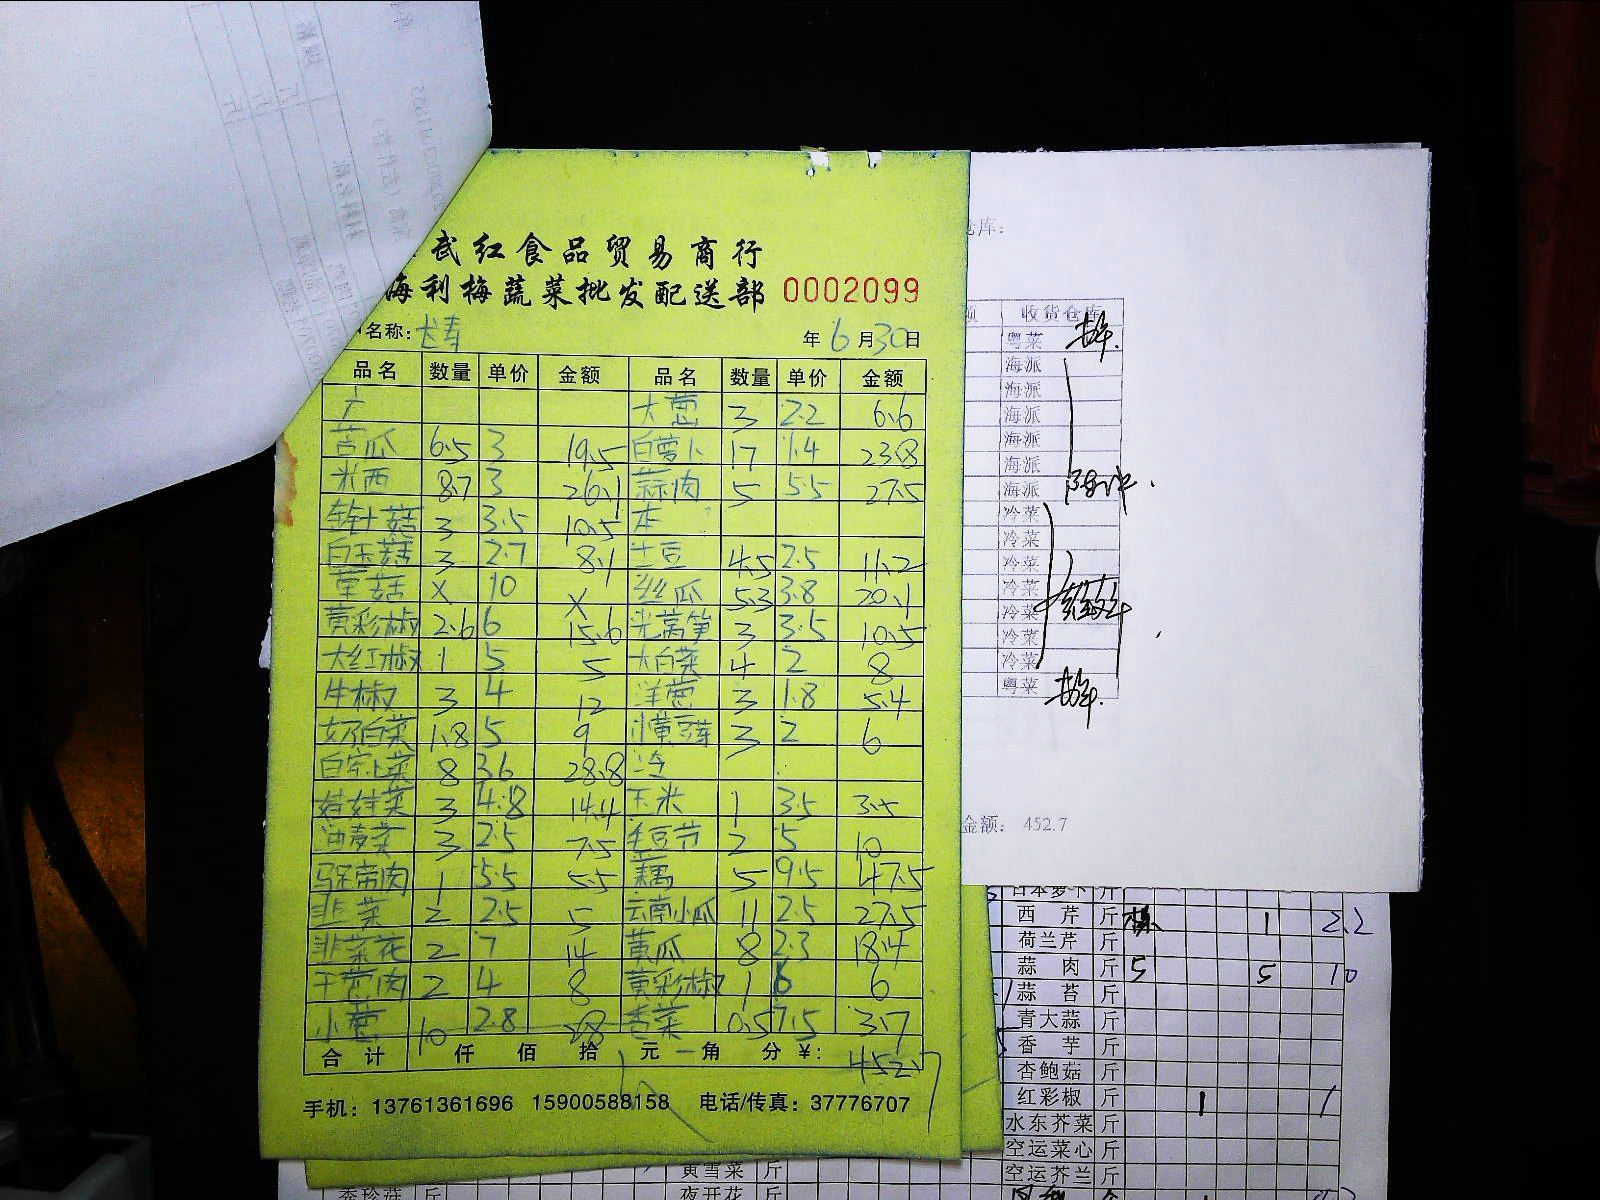 武红食品贸易商行
海利梅蔬菜批发配送部 0002099
名称: 年6月30日
品名 数量 单价 金额 品名 数量 单价 金额
大葱 3 2.2 6.6
苦瓜 6.5 3 19.5 白萝卜 17 1.4 23.8
米西 8.7 3 26.1 蒜肉 5 5.5 27.5
金针菇 3 3.5 10.5 本
白玉菇 3 2.7 8.1 土豆 4.5 2.5 11.2
草菇 X 10 X 丝瓜 5.3 3.8 20.1
黄彩椒 2.6 6 15.6 光莴笋 3 3.5 10.5
大红椒 1 5 5 大白菜 4 2 8
牛椒 3 4 12 洋葱 3 1.8 5.4
奶白菜 1.8 5 9 黄豆芽 3 2 6
8 3.6 28.8 冷
娃娃菜 3 4.8 14.4 玉米 1 3.5 3.5
油麦菜 3 2.5 7.5 毛豆节 2 5 10
马蹄肉 1 5.5 5.5 藕 5 9.5 47.5
韭菜 2 2.5 5 云南小瓜 11 2.5 27.5
韭菜花 2 7 14 黄瓜 8 2.3 18.4
干葱肉 2 4 8 黄彩椒 1 6 6
小葱 10 2.8 28 香菜 0.5 7.5 3.7
合计 仟 佰 拾 元 角 分 ¥: 452.7
手机: 13761361696 15900588158 电话/传真: 37776707
仓库:
额 收货仓库
粤菜
海派
海派
海派
海派
海派
海派
冷菜
冷菜
冷菜
冷菜
冷菜
冷菜
冷菜
粤菜
金额: 452.7
日本萝卜 斤
西芹 斤 1 2.2
荷兰芹 斤
蒜肉 斤 5 5 10
蒜苔 斤
青大蒜 斤
香芋 斤
杏鲍菇 斤
红彩椒 斤 1 1
水东芥菜 斤
空运菜心 斤
黄雪菜 斤 空运芥兰 斤
秀珍菇 斤 夜开花 斤